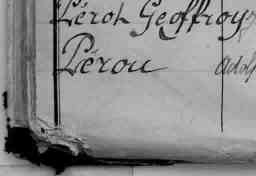 Pérot Geoffroy
Pérou Adolp